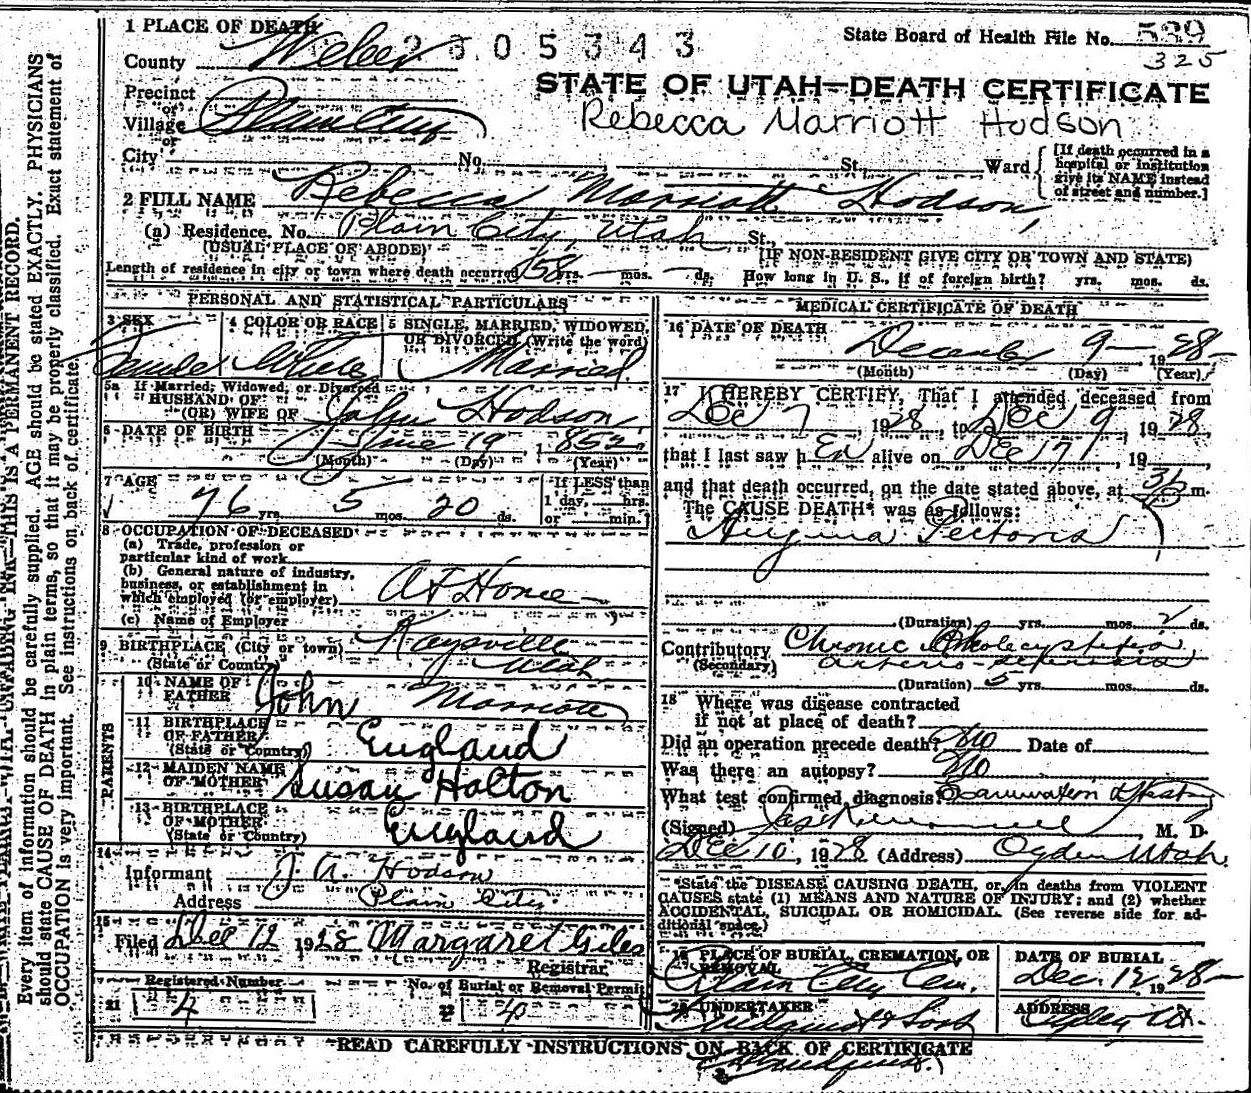 1 PLACE OF DEATH
2805343
State Board of Health File No. 589
325
County Weber
STATE OF UTAH—DEATH CERTIFICATE
Precinct
or
Village Plain City
Rebecca Marriott Hodson
or
City No. St. Ward
[If death occurred in a hospital or institution give its NAME instead of street and number.]
2 FULL NAME Rebecca Marriott Hodson,
(a) Residence. No. Plain City, Utah St.,
(USUAL PLACE OF ABODE) (IF NON-RESIDENT GIVE CITY OR TOWN AND STATE)
Length of residence in city or town where death occurred 58 yrs. — mos. — ds. How long in U. S., if of foreign birth? yrs. mos. ds.
PERSONAL AND STATISTICAL PARTICULARS
3 SEX 4 COLOR OR RACE 5 SINGLE, MARRIED, WIDOWED, OR DIVORCED (Write the word)
Female White Married
5a If Married, Widowed, or Divorced
HUSBAND OF
(OR) WIFE OF John Hodson
6 DATE OF BIRTH June 19, 1852
(Month) (Day) (Year)
7 AGE
76 yrs. 5 mos. 20 ds.
If LESS than 1 day, hrs. or min.
8 OCCUPATION OF DECEASED
(a) Trade, profession or particular kind of work
(b) General nature of industry, business, or establishment in which employed (or employer) At Home
(c) Name of Employer
9 BIRTHPLACE (City or town) Kaysville
(State or Country) Utah
PARENTS
10 NAME OF FATHER John Marriott
11 BIRTHPLACE OF FATHER (State or Country) England
12 MAIDEN NAME OF MOTHER Susan Holton
13 BIRTHPLACE OF MOTHER (State or Country) England
14
Informant J. A. Hodson
Address Plain City
15
Filed Dec 12 1928 Margaret Giles
Registrar
Registered Number No. of Burial or Removal Permit
21 4 22 4
MEDICAL CERTIFICATE OF DEATH
16 DATE OF DEATH
December 9— 1928—
(Month) (Day) (Year)
17 I HEREBY CERTIFY, That I attended deceased from
Dec 7, 1928, to Dec 9, 1928,
that I last saw her alive on Dec 7, 19
and that death occurred, on the date stated above, at m.
The CAUSE DEATH* was as follows:
Angina Pectoris
(Duration) yrs. mos. 2 ds.
Contributory Chronic Cholecystitis
(Secondary) arterio-sclerosis
(Duration) 5 yrs. mos. ds.
18 Where was disease contracted
if not at place of death?
Did an operation precede death? No Date of
Was there an autopsy? No
What test confirmed diagnosis? Examination & History
(Signed) M. D.
Dec 10, 1928 (Address) Ogden Utah.
*State the DISEASE CAUSING DEATH, or, in deaths from VIOLENT
CAUSES state (1) MEANS AND NATURE OF INJURY; and (2) whether
ACCIDENTAL, SUICIDAL OR HOMICIDAL. (See reverse side for ad-
ditional space.)
19 PLACE OF BURIAL, CREMATION, OR REMOVAL DATE OF BURIAL
Plain City Cem. Dec. 12 1928—
20 UNDERTAKER ADDRESS
Lindquist & Sons Ogden Ut.
READ CAREFULLY INSTRUCTIONS ON BACK OF CERTIFICATE
Every item of information should be carefully supplied. AGE should be stated EXACTLY. PHYSICIANS
should state CAUSE OF DEATH in plain terms, so that it may be properly classified. Exact statement of
OCCUPATION is very important. See instructions on back of certificate.